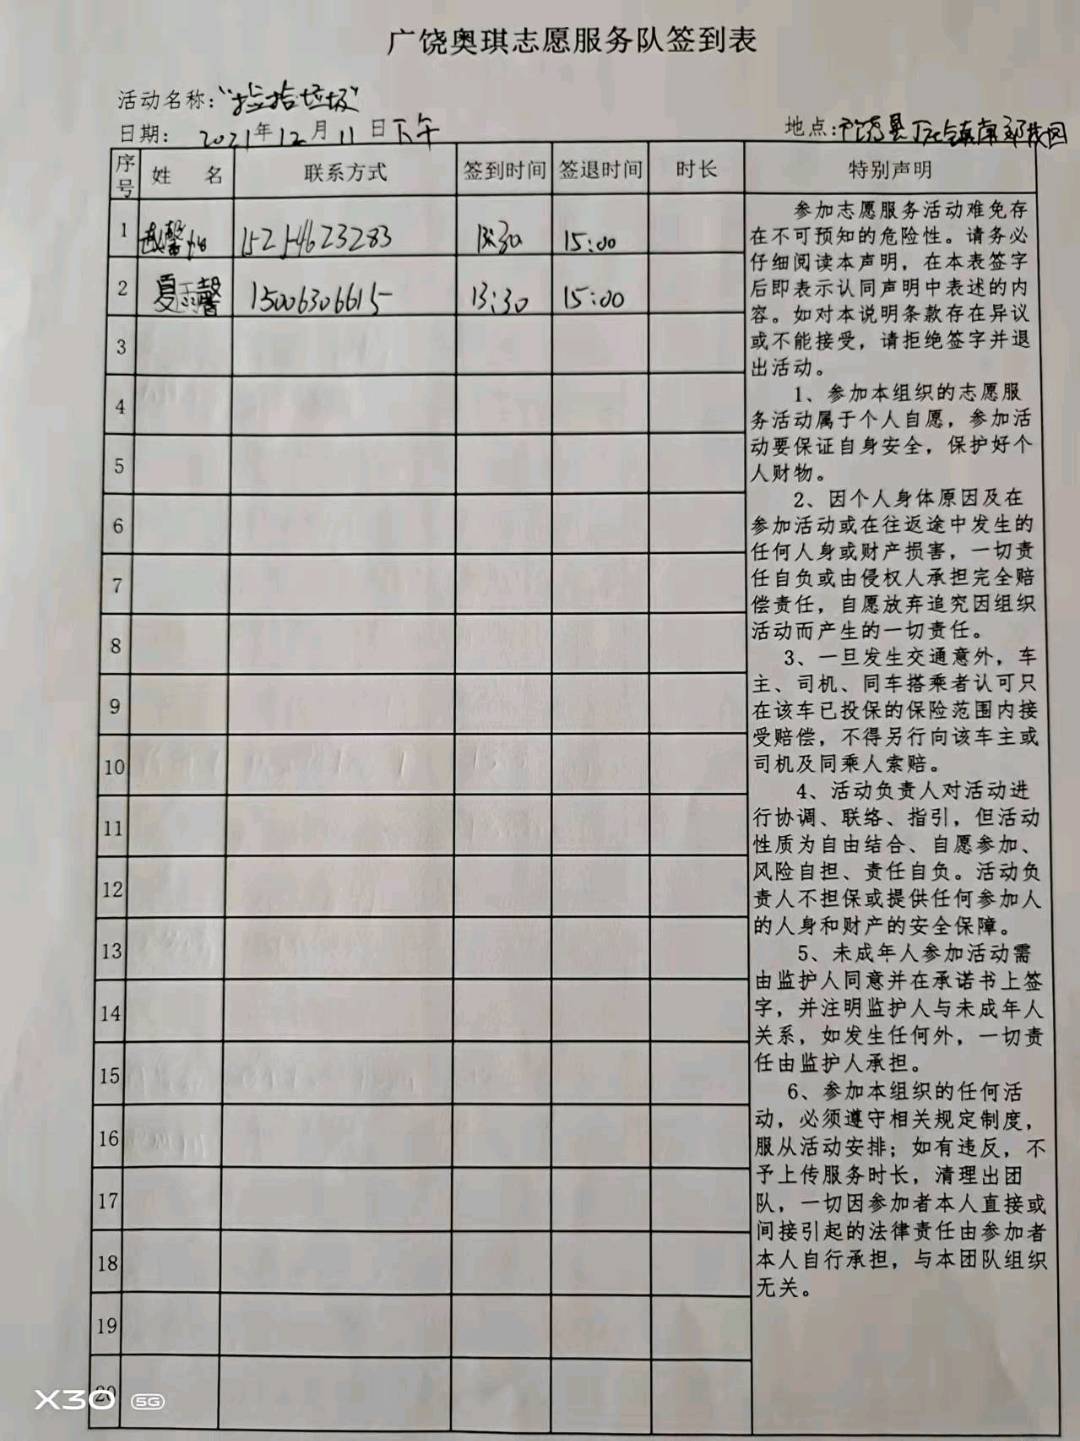 广饶奥琪志愿服务队签到表
活动名称:"捡拾垃圾"
日期: 2021年12月11日下午
地点:广饶县
序号 姓 名 联系方式 签到时间 签退时间 时长 特别声明
1 15214623283 13:30 15:00
2 夏玉馨 15006306615 13:30 15:00
3
4
5
6
7
8
9
10
11
12
13
14
15
16
17
18
19
20
参加志愿服务活动难免存
在不可预知的危险性。请务必
仔细阅读本声明，在本表签字
后即表示认同声明中表述的内
容。如对本说明条款存在异议
或不能接受，请拒绝签字并退
出活动。
1、参加本组织的志愿服
务活动属于个人自愿，参加活
动要保证自身安全，保护好个
人财物。
2、因个人身体原因及在
参加活动或在往返途中发生的
任何人身或财产损害，一切责
任自负或由侵权人承担完全赔
偿责任，自愿放弃追究因组织
活动而产生的一切责任。
3、一旦发生交通意外，车
主、司机、同车搭乘者认可只
在该车已投保的保险范围内接
受赔偿，不得另行向该车主或
司机及同乘人索赔。
4、活动负责人对活动进
行协调、联络、指引，但活动
性质为自由结合、自愿参加、
风险自担、责任自负。活动负
责人不担保或提供任何参加人
的人身和财产的安全保障。
5、未成年人参加活动需
由监护人同意并在承诺书上签
字，并注明监护人与未成年人
关系，如发生任何外，一切责
任由监护人承担。
6、参加本组织的任何活
动，必须遵守相关规定制度，
服从活动安排；如有违反，不
予上传服务时长，清理出团
队，一切因参加者本人直接或
间接引起的法律责任由参加者
本人自行承担，与本团队组织
无关。
X30 5G